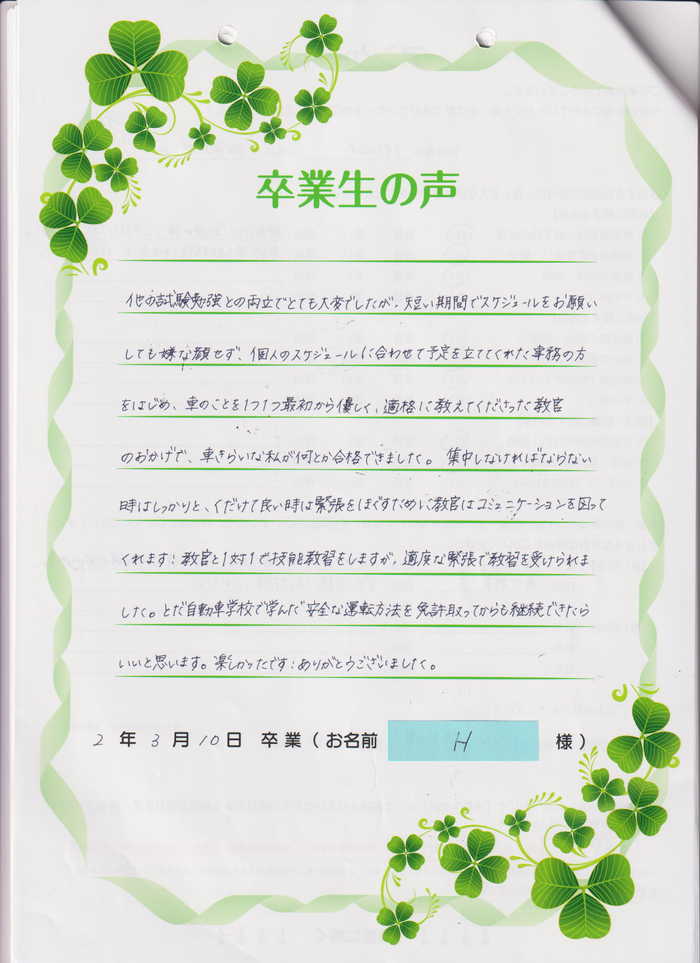 卒業生の声
他の試験勉強との両立でとても大変でしたが、短い期間でスケジュールをお願い
しても嫌な顔せず、個人のスケジュールに合わせて予定を立ててくれた事務の方
をはじめ、車のことを1つ1つ最初から優しく、適格に教えてくださった教官
のおかげで、車きらいな私が何とか合格できました。集中しなければならない
時はしっかりと、くだけて良い時は緊張をほぐすために教官はコミュニケーションを図って
くれます!教官と1対1で技能教習をしますが、適度な緊張で教習を受けられま
した。とだ自動車学校で学んだ安全な運転方法を免許取ってからも継続できたら
いいと思います。楽しかったです!ありがとうございました。
2年3月10日 卒業(お名前 H 様)